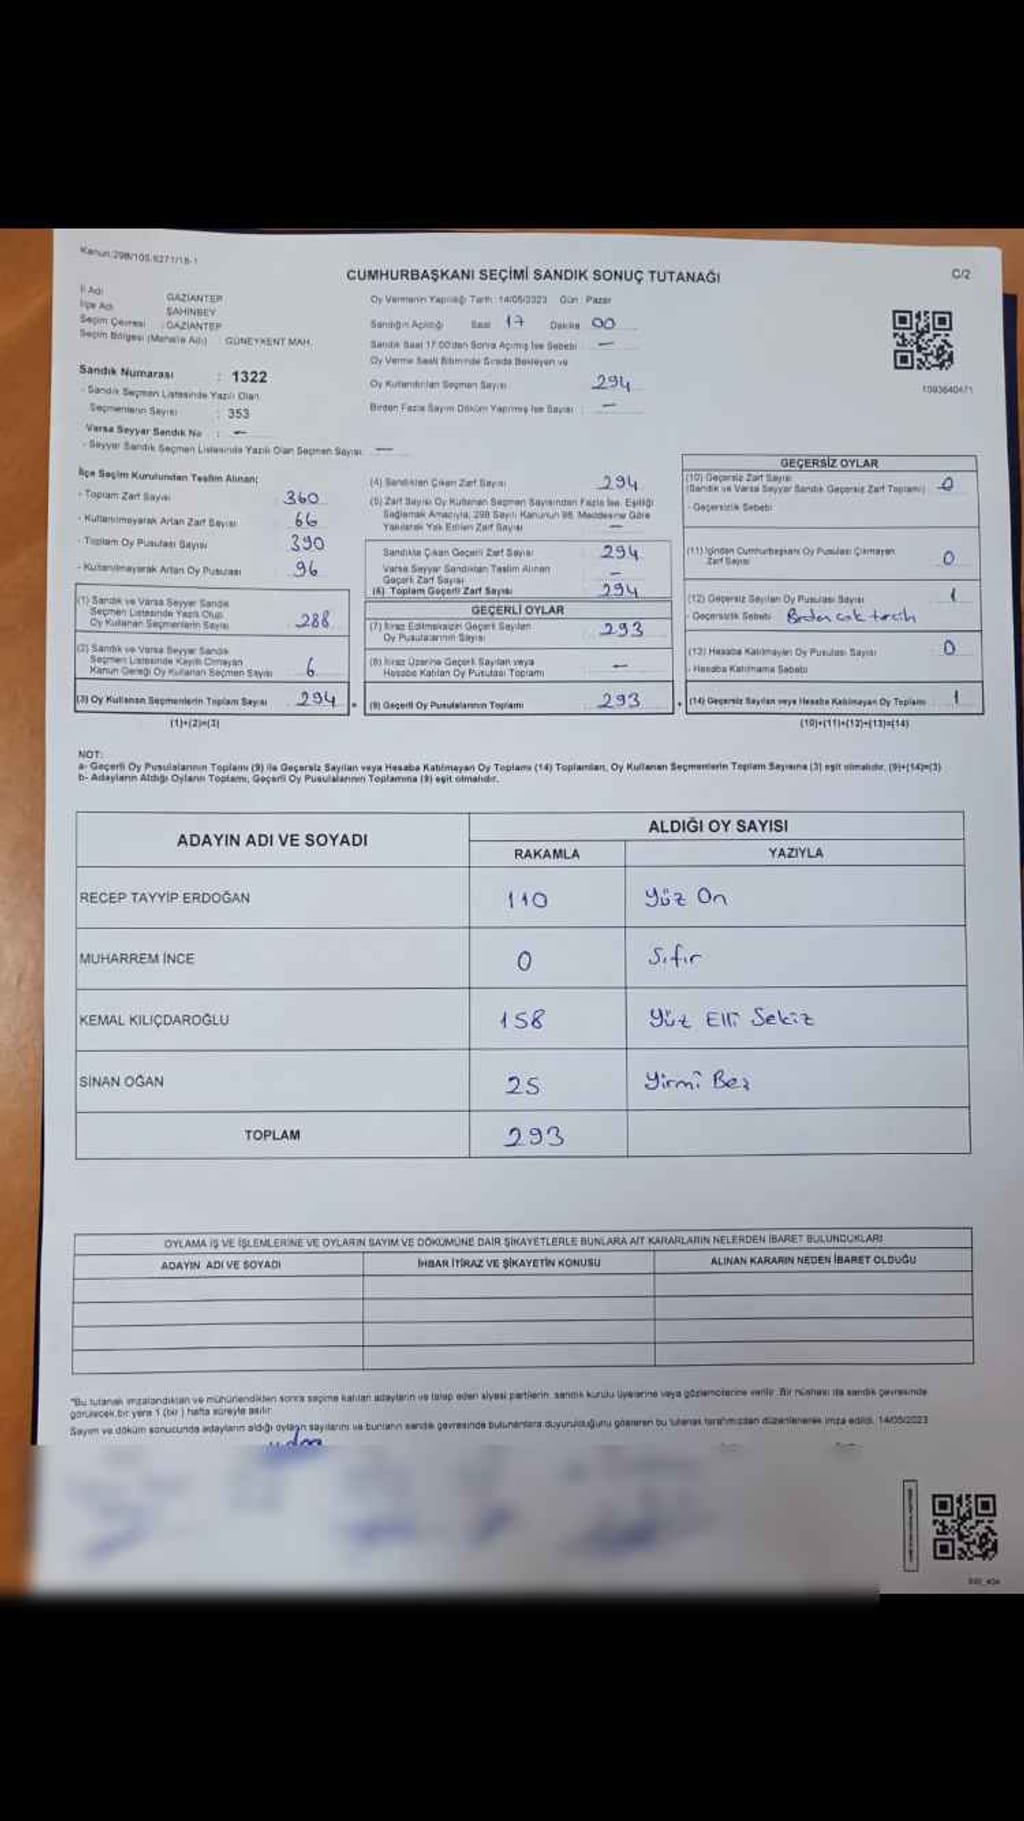 Kanun:298/105,6271/18-1
CUMHURBAŞKANI SEÇİMİ SANDIK SONUÇ TUTANAĞI
C/2
İl Adı GAZİANTEP
İlçe Adı ŞAHİNBEY
Seçim Çevresi : GAZİANTEP
Seçim Bölgesi (Mahalle Adı) : GÜNEYKENT MAH.
Sandık Numarası : 1322
- Sandık Seçmen Listesinde Yazılı Olan
Seçmenlerin Sayısı : 353
Varsa Seyyar Sandık No : —
- Seyyar Sandık Seçmen Listesinde Yazılı Olan Seçmen Sayısı: —
Oy Vermenin Yapıldığı Tarih: 14/05/2023 Gün : Pazar
Sandığın Açıldığı Saat 17 Dakika 00
Sandık Saat 17.00'dan Sonra Açılmış İse Sebebi —
Oy Verme Saati Bitiminde Sırada Bekleyen ve
Oy Kullandırılan Seçmen Sayısı 294
Birden Fazla Sayım Döküm Yapılmış İse Sayısı : —
1093640471
İlçe Seçim Kurulundan Teslim Alınan;
- Toplam Zarf Sayısı 360
- Kullanılmayarak Artan Zarf Sayısı 66
- Toplam Oy Pusulası Sayısı 390
- Kullanılmayarak Artan Oy Pusulası 96
(1) Sandık ve Varsa Seyyar Sandık
Seçmen Listesinde Yazılı Olup
Oy Kullanan Seçmenlerin Sayısı 288
(2) Sandık ve Varsa Seyyar Sandık
Seçmen Listesinde Kayıtlı Olmayan
Kanun Gereği Oy Kullanan Seçmen Sayısı 6
(3) Oy Kullanan Seçmenlerin Toplam Sayısı 294
(1)+(2)=(3)
(4) Sandıktan Çıkan Zarf Sayısı 294
(5) Zarf Sayısı Oy Kullanan Seçmen Sayısından Fazla İse, Eşitliği
Sağlamak Amacıyla, 298 Sayılı Kanunun 98. Maddesine Göre
Yakılarak Yok Edilen Zarf Sayısı —
Sandıkta Çıkan Geçerli Zarf Sayısı 294
Varsa Seyyar Sandıktan Teslim Alınan
Geçerli Zarf Sayısı —
(6) Toplam Geçerli Zarf Sayısı 294
GEÇERLİ OYLAR
(7) İtiraz Edilmeksizin Geçerli Sayılan
Oy Pusulalarının Sayısı 293
(8) İtiraz Üzerine Geçerli Sayılan veya
Hesaba Katılan Oy Pusulası Toplamı —
(9) Geçerli Oy Pusulalarının Toplamı 293
GEÇERSİZ OYLAR
(10) Geçersiz Zarf Sayısı
(Sandık ve Varsa Seyyar Sandık Geçersiz Zarf Toplamı) 0
- Geçersizlik Sebebi
(11) İçinden Cumhurbaşkanı Oy Pusulası Çıkmayan
Zarf Sayısı 0
(12) Geçersiz Sayılan Oy Pusulası Sayısı 1
- Geçersizlik Sebebi Birden çok tercih
(13) Hesaba Katılmayan Oy Pusulası Sayısı 0
- Hesaba Katılmama Sebebi
(14) Geçersiz Sayılan veya Hesaba Katılmayan Oy Toplamı 1
(10)+(11)+(12)+(13)=(14)
NOT:
a- Geçerli Oy Pusulalarının Toplamı (9) ile Geçersiz Sayılan veya Hesaba Katılmayan Oy Toplamı (14) Toplamları, Oy Kullanan Seçmenlerin Toplam Sayısına (3) eşit olmalıdır. (9)+(14)=(3)
b- Adayların Aldığı Oyların Toplamı, Geçerli Oy Pusulalarının Toplamına (9) eşit olmalıdır.
ADAYIN ADI VE SOYADI
ALDIĞI OY SAYISI
RAKAMLA YAZIYLA
RECEP TAYYİP ERDOĞAN 110 Yüz On
MUHARREM İNCE 0 Sıfır
KEMAL KILIÇDAROĞLU 158 Yüz Elli Sekiz
SİNAN OĞAN 25 Yirmi Beş
TOPLAM 293
OYLAMA İŞ VE İŞLEMLERİNE VE OYLARIN SAYIM VE DÖKÜMÜNE DAİR ŞİKAYETLERLE BUNLARA AİT KARARLARIN NELERDEN İBARET BULUNDUKLARI
ADAYIN ADI VE SOYADI İHBAR İTİRAZ VE ŞİKAYETİN KONUSU ALINAN KARARIN NEDEN İBARET OLDUĞU
*Bu tutanak imzalandıktan ve mühürlendikten sonra seçime katılan adayların ve talep eden siyasi partilerin, sandık kurulu üyelerine veya gözlemcilerine verilir. Bir nüshası da sandık çevresinde
görülecek bir yere 1 (bir) hafta süreyle asılır.
Sayım ve döküm sonucunda adayların aldığı oyların sayılarını ve bunların sandık çevresinde bulunanlara duyurulduğunu gösteren bu tutanak tarafımızdan düzenlenerek imza edildi. 14/05/2023